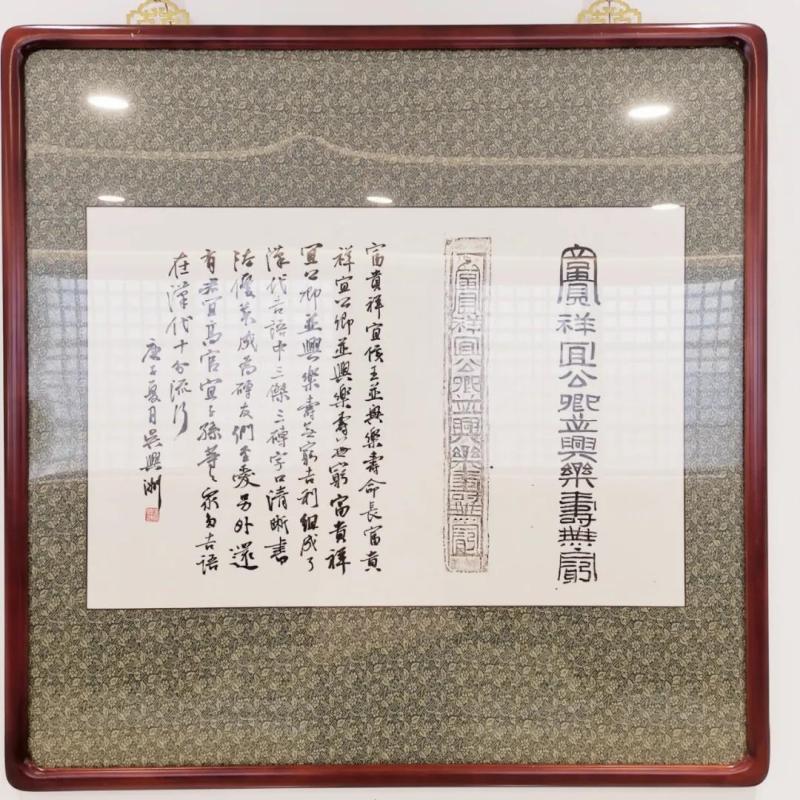 富貴祥宜公卿並興樂壽無窮
富貴祥宜公卿並興樂壽無窮
富貴祥宜侯王並興樂壽命長富貴
祥宜公卿並興樂壽無窮富貴祥
宜公卿並興樂壽无窮吉利組成了
漢代吉語中三傑三磚字口清晰書
法優美成為磚友們至愛另外還
有君宜高官宜子孫等眾多吉語
在漢代十分流行
庚子夏月吳興洲